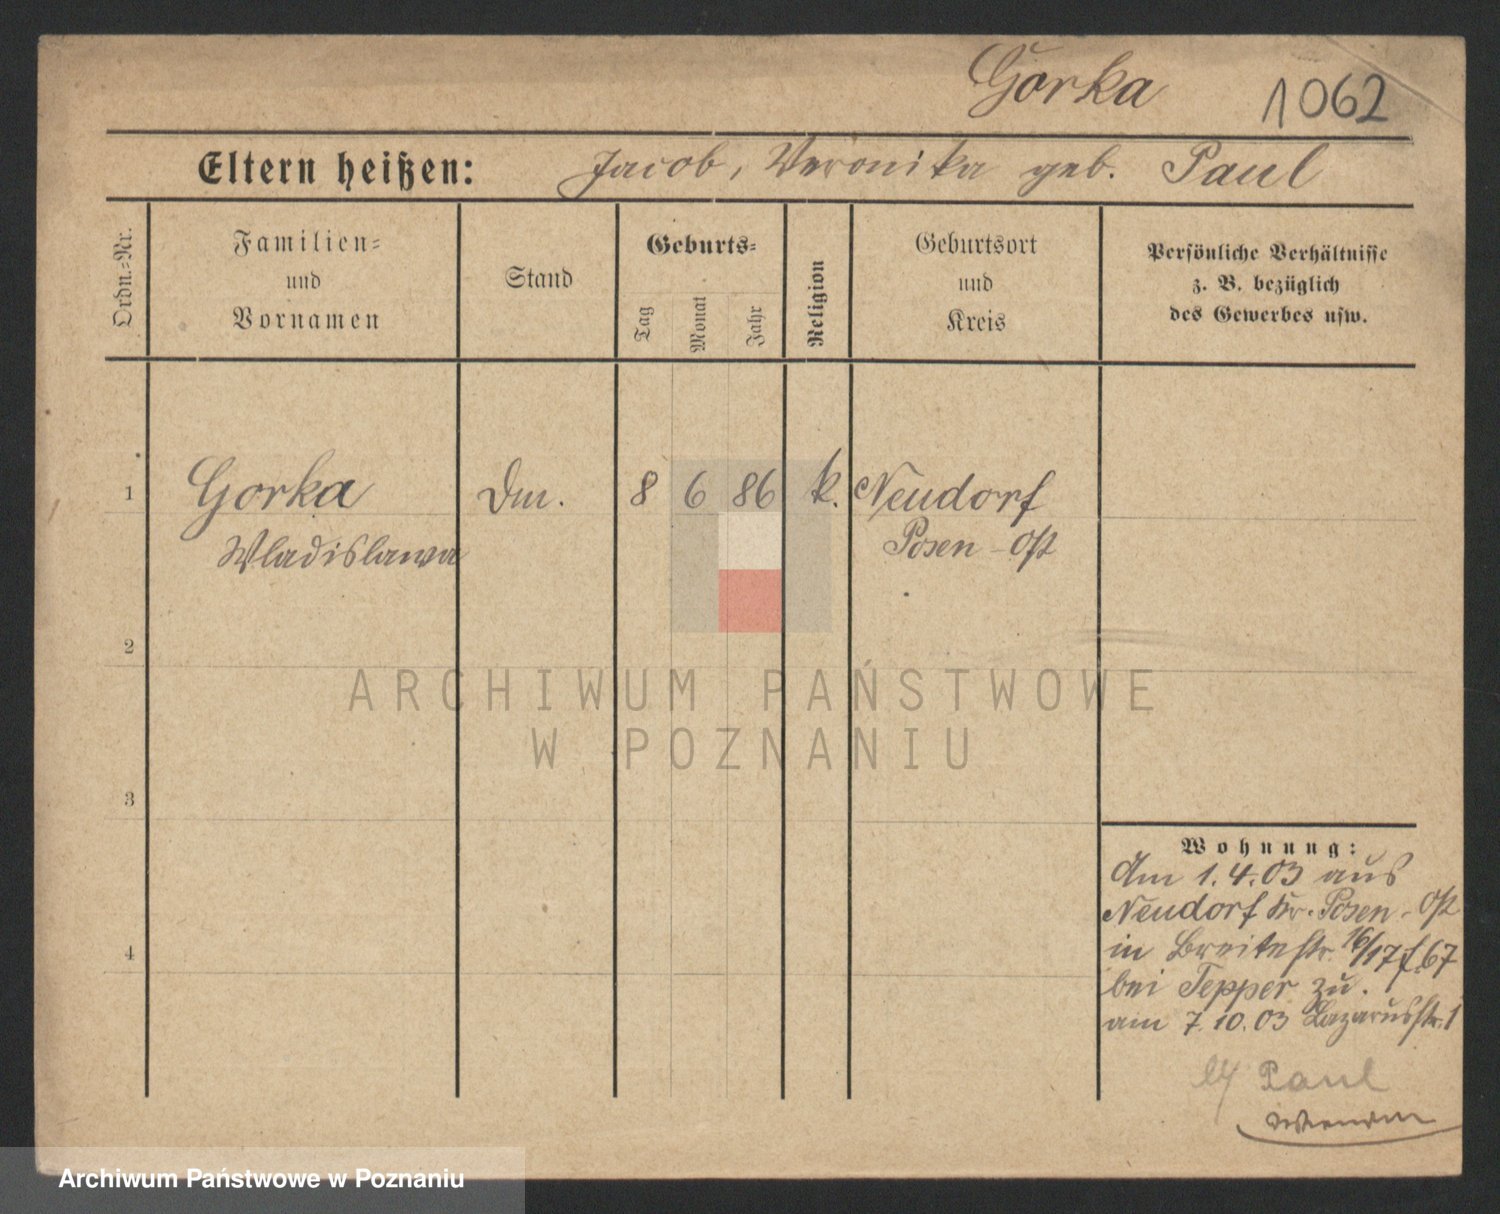 Gorka 1062
Eltern heißen: Jacob, Veronika geb. Paul
Ordn.=Nr.
Familien=
und
Vornamen
Stand
Geburts=
Tag
Monat
Jahr
Religion
Geburtsort
und
Kreis
Persönliche Verhältnisse
z. B. bezüglich
des Gewerbes usw.
1 Gorka 8 6 86 k. Neudorf
Wladislawa Posen - Ost
2
3
4
Wohnung:
Am 1.4.03 aus
Neudorf Kr. Posen - Ost
in Breitestr. 16/17
bei Tepper zu.
am 7.10.03 Lazarusstr. 1
Paul
ARCHIWUM PAŃSTWOWE
W POZNANIU
Archiwum Państwowe w Poznaniu